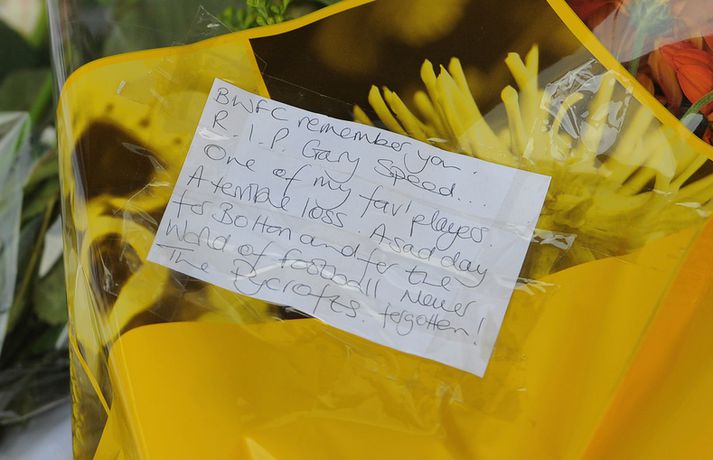 BWFC remember you.
R.I.P. Gary Speed...
One of my fav' players.
A terrible loss. A sad day
for Bolton and for the
World of football Never
The Rycrofts. forgotten!